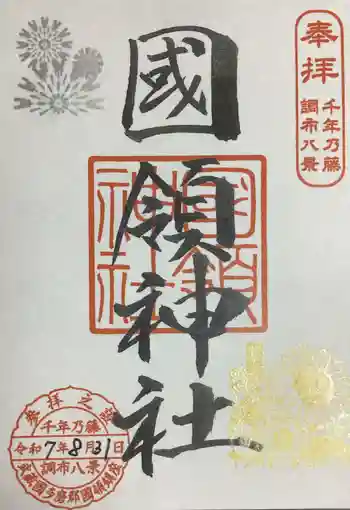 奉拝
千年乃藤
調布八景
國領神社
國領
神社
参拝之証
千年乃藤
令和7年8月31日
調布八景
武蔵國多磨郡國領鎮座